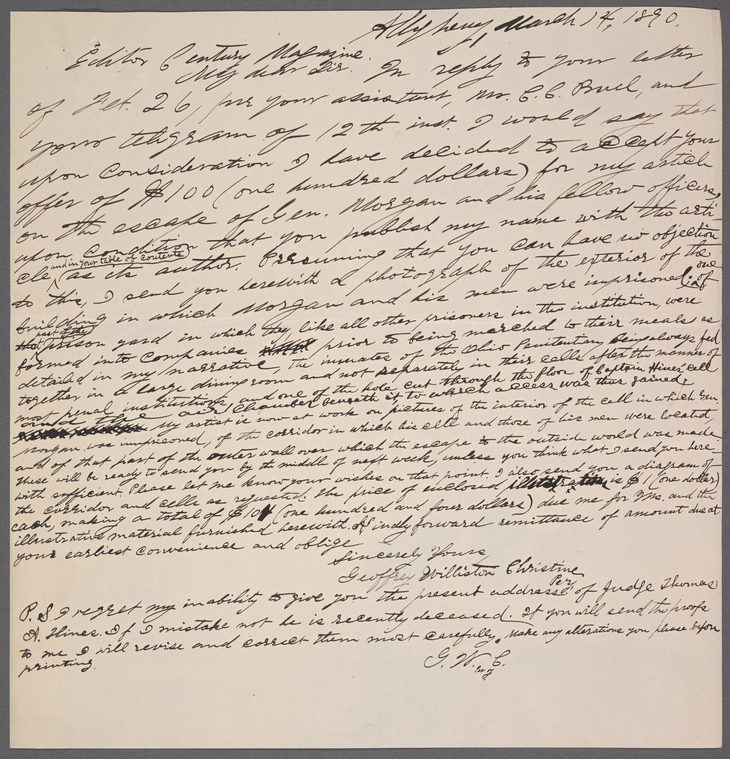 Allegheny, March 14, 1890.
Editor Century Magazine.
My dear Sir. In reply to your letter
of Feb. 26, per your assistant, Mr. C. C. Buel, and
your telegram of 12th inst. I would say that
upon consideration I have decided to accept your
offer of $100 (one hundred dollars) for my article
on the escape of Gen. Morgan and his fellow officers,
upon condition that you publish my name with the arti-
cle and in your table of contents as its author. Presuming that you can have no objection
to this, I send you herewith a photograph of the exterior of the
building in which Morgan and his men were imprisoned; one of
part of the prison yard in which they like all other prisoners in the institution, were
formed into companies prior to being marched to their meals as
detailed in my narrative, the inmates of the Ohio Penitentiary being always fed
together in a large dining room and not separately in their cells after the manner of
most penal institutions, and one of the hole cut through the floor of Captain Hines' cell
and the air chamber beneath it to which access was thus gained
My artist is now at work on pictures of the interior of the cell in which Gen.
Morgan was imprisoned, of the corridor in which his cell and those of his men were located
and of that part of the outer wall over which the escape to the outside world was made.
These will be ready to send you by the middle of next week, unless you think what I send you here-
with sufficient. Please let me know your wishes on that point. I also send you a diagram of
the corridor and cells as requested. The price of enclosed illustrations is $1 (one dollar)
each, making a total of $104 (one hundred and four dollars) due me for Ms. and the
illustrative material furnished herewith. Kindly forward remittance of amount due at
your earliest convenience and oblige
Sincerely Yours
Geoffrey Williston Christine
Per
P.S. I regret my inability to give you the present address of Judge Thomas
H. Hines. If I mistake not he is recently deceased. If you will send the proofs
to me I will revise and correct them most carefully. Make any alterations you please before
printing.
G. W. C.